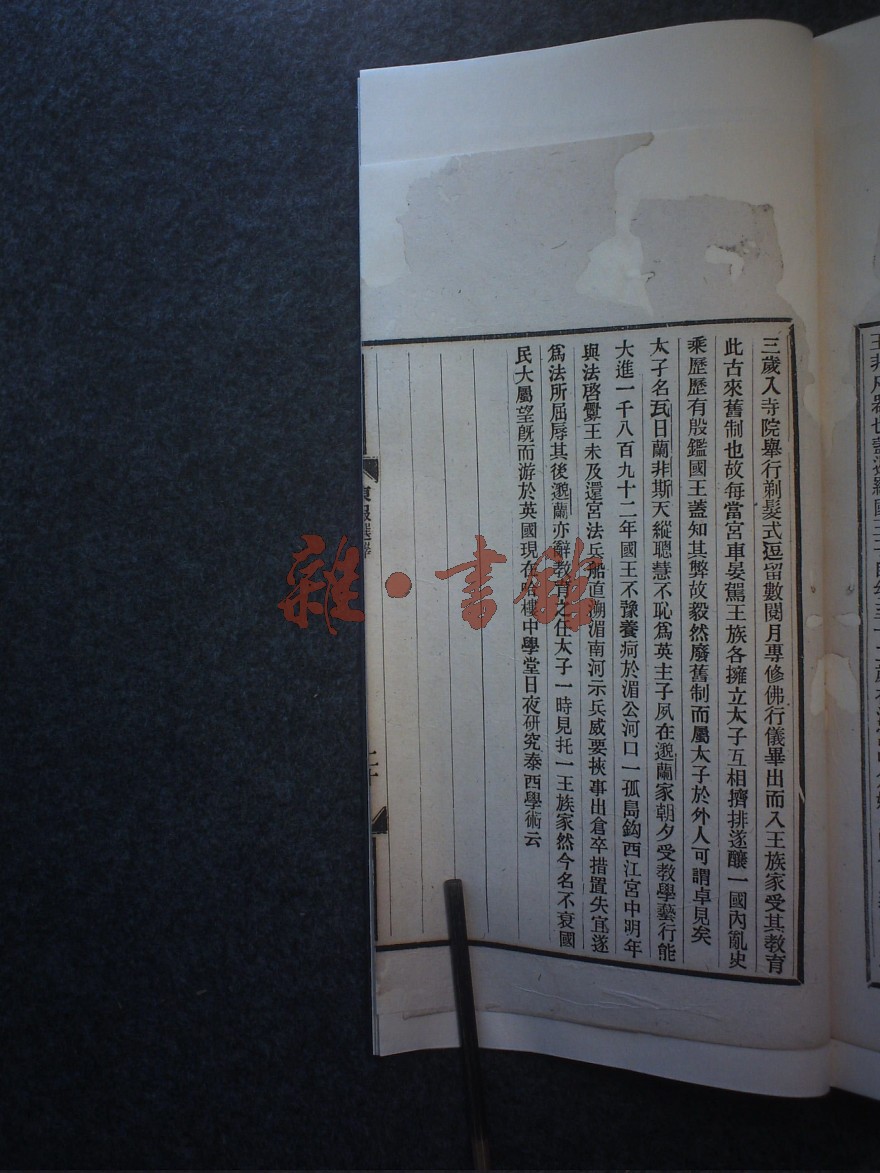 三歲入寺院舉行剃髮式逗留數閱月專修佛行儀畢出而入王族家受其教育
此古來舊制也故每當宮車晏駕王族各擁立太子互相擠排遂釀一國內亂史
乘歷歷有殷鑑國王蓋知其弊故毅然廢舊制而屬太子於外人可謂卓見矣
太子名瓦日蘭非斯天縱聰慧不恥為英主子夙在邈蘭家朝夕受教學藝行能
大進一千八百九十二年國王不豫養疴於湄公河口一孤島鈎西江宮中明年
與法啓釁王未及還宮法兵船直溯湄南河示兵威要挾事出倉卒措置失宜遂
為法所屈辱其後邈蘭亦辭教育之任太子一時見托一王族家然今名不衰國
民大屬望旣而游於英國現在哈樓中學堂日夜研究泰西學術云
東報選譯
二十
雜·書館